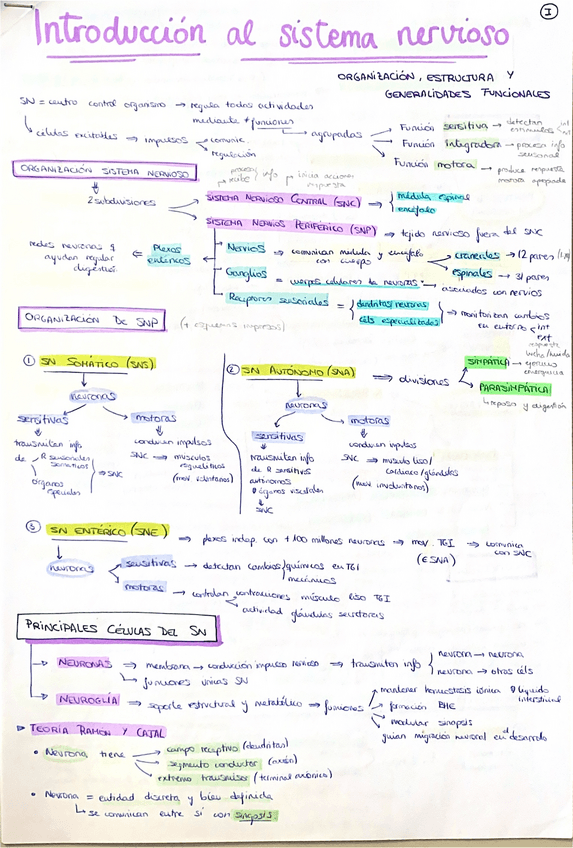 I
Introducción al sistema nervioso
ORGANIZACIÓN, ESTRUCTURA Y
GENERALIDADES FUNCIONALES
SN = centro control organismo → regula todas actividades
mediante ≠ funciones → agrupadas
Función sensitiva → detectan estímulos
Función integradora → procesa info sensorial
Función motora → produce respuesta motora apropiada
células excitables ⇒ impulsos
comunic.
regulación
ORGANIZACIÓN SISTEMA NERVIOSO
2 subdivisiones
SISTEMA NERVIOSO CENTRAL (SNC) ⇒ médula espinal
encéfalo
SISTEMA NERVIOS PERIFÉRICO (SNP) ⇒ tejido nervioso fuera del SNC
redes neuronas q ayudan regular digestión ⇐ Plexos entéricos
Nervios ⇒ comunican médula y encéfalo con cuerpo
craneales → 12 pares
espinales → 31 pares
Ganglios = cuerpos celulares de neuronas → asociados con nervios
Receptores sensoriales = dendritas neuronas
céls especializadas
⇒ monitorizan cambios en entorno
int
ext
ORGANIZACIÓN DE SNP (+ esquemas impresos)
1 SN SOMÁTICO (SNS)
neuronas
sensitivas
transmiten info de
R sensoriales somáticos
órganos especiales
⇒ SNC
motoras
conducen impulsos
SNC ⇒ músculos esqueléticos
(mov voluntarios)
2 SN AUTÓNOMO (SNA) ⇒ divisiones
SIMPÁTICA → respuesta lucha/huida
ejercicio
emergencia
PARASIMPÁTICA
reposo y digestión
neuronas
sensitivas
transmiten info
de R sensitivos
autónomos
órganos viscerales
SNC
motoras
conducen impulsos
SNC ⇒ músculo liso/
cardiaco/glándulas
(mov involuntarios)
3 SN ENTÉRICO (SNE) ⇒ plexos indep. con +100 millones neuronas ⇒ mov. TGI ⇒ comunica con SNC
(∈ SNA)
neuronas
sensitivas → detectan cambios químicos en TGI
mecánicos
motoras → controlan contracciones músculo liso TGI
actividad glándulas secretoras
PRINCIPALES CÉLULAS DEL SN
NEURONAS ⇒ membrana → conducción impulso nervioso ⇒ transmiten info
neurona → neurona
neurona → otras céls
funciones únicas SN
NEUROGLÍA ⇒ soporte estructural y metabólico ⇒ funciones
mantener homeostasis iónica líquido intersticial
formación BHE
modular sinapsis
guían migración neuronal en desarrollo
TEORÍA RAMON Y CAJAL
• Neurona tiene
campo receptivo (dendritas)
segmento conductor (axón)
extremo transmisor (terminal axónica)
• Neurona = entidad discreta y bien definida
↳ se comunican entre sí con sinapsis